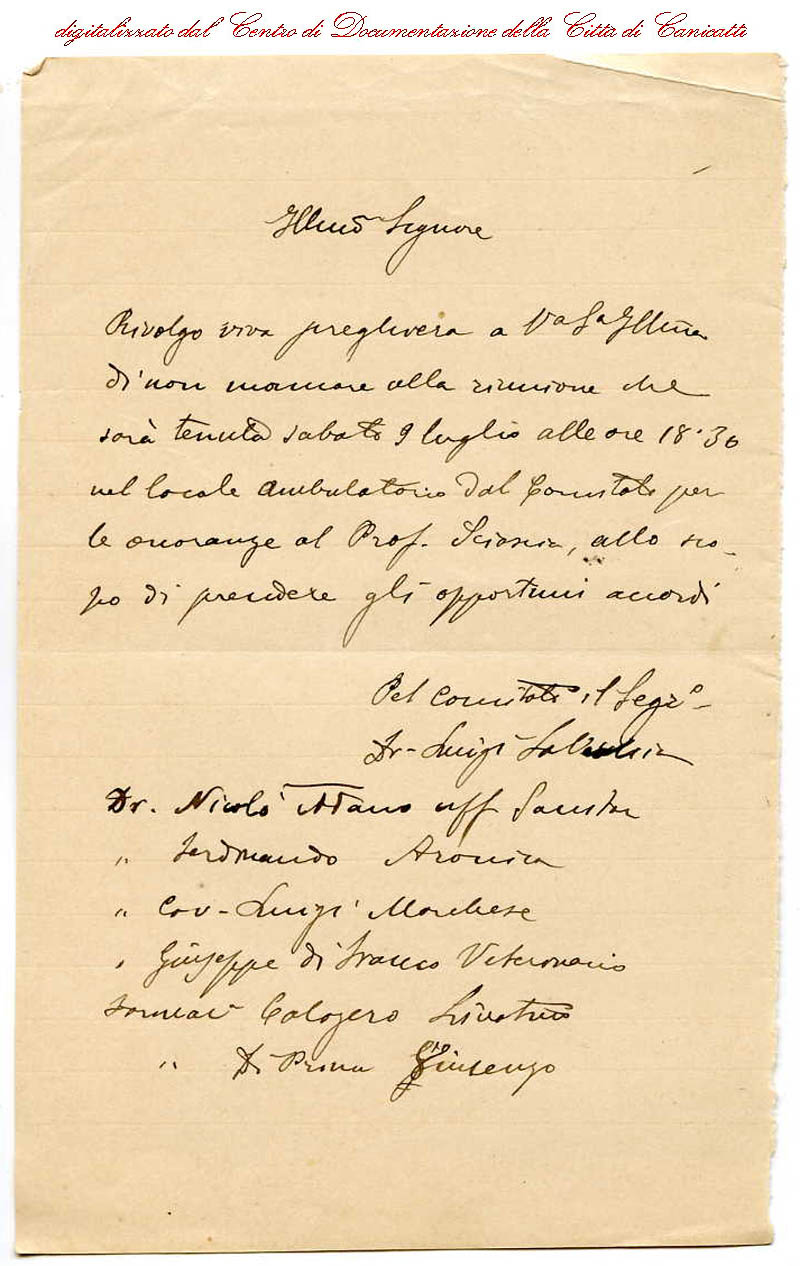 digitalizzato dal Centro di Documentazione della Città di Canicattì
Illmo Signore
Rivolgo viva preghiera a Va Sa Illma
di non mancare alla riunione che
sarà tenuta sabato 9 luglio alle ore 18.30
nel locale ambulatorio dal Comitato per
le onoranze al Prof. Sciascia, allo sco-
po di prendere gli opportuni accordi
Pel Comitato il Segro
Dr- Luigi
Dr. Nicolò Adamo uff Sanitar
" Ferdinando Aronica
" Cav- Luigi Marchese
" Giuseppe di Franco Veterinario
Farmac Calogero Livatino
" Di Prima